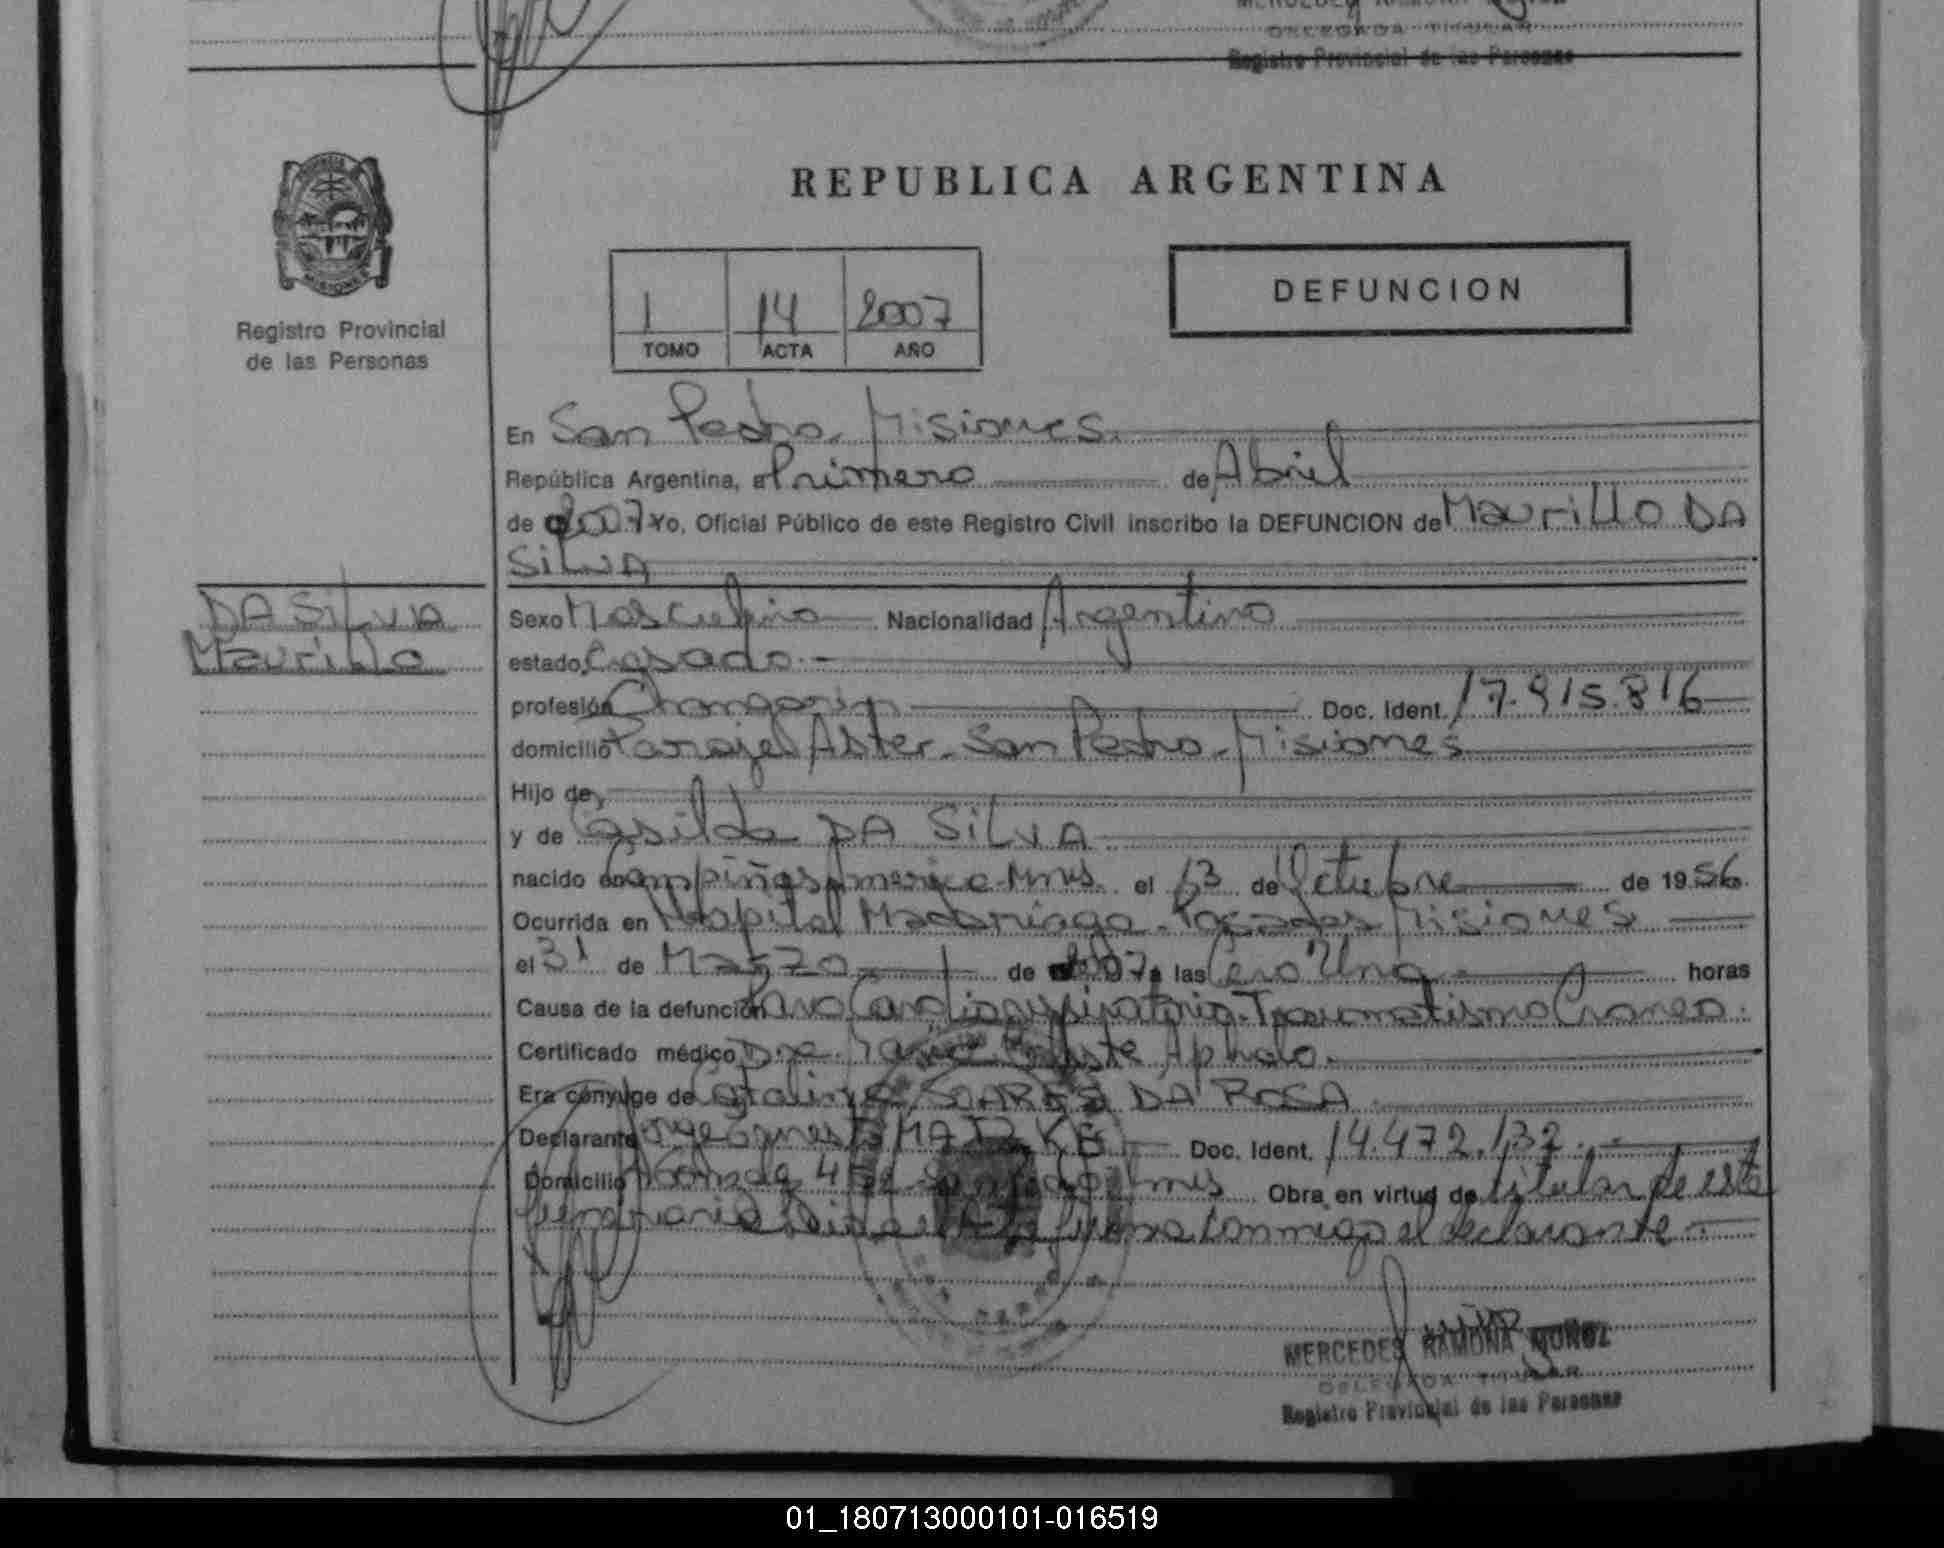 DELEGADA TITULAR
Registro Provincial de las Personas
MISIONES
Registro Provincial
de las Personas
REPUBLICA ARGENTINA
1 14 2007
TOMO ACTA AÑO
DEFUNCION
En San Pedro, Misiones.
República Argentina, a Primero de Abril
de 2007 Yo, Oficial Público de este Registro Civil inscribo la DEFUNCION de Maurillo DA
SILVA
DA SILVA
Maurillo
Sexo Masculino Nacionalidad Argentino
estado, Casado.-
profesión Changarin Doc. Ident. 17.915.816
domicilio Paraje Alster. San Pedro. Misiones
Hijo de
y de Casilda DA SILVA
nacido en Campiñas America Mnes. el 13 de Octubre de 1956
Ocurrida en Hospital Madariaga. Posadas Misiones
el 31 de Marzo de 2007 a las Cero Una horas
Causa de la defunción Paro Cardiorespiratorio. Traumatismo Craneo.
Certificado médico Dra.
Era cónyuge de Catalina SOARES DA ROSA
Declarante Jorge Doc. Ident. 14.472.132.
Domicilio Mnes Obra en virtud de titular de esta
funeraria firma conmigo el declarante
MERCEDES RAMONA MUÑOZ
DELEGADA TITULAR
Registro Provincial de las Personas
01_180713000101-016519